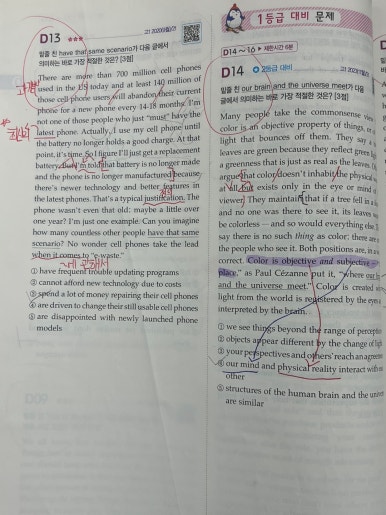 D13 ★★★
고1 2020(9월)/21
밑줄 친 have that same scenario가 다음 글에서
의미하는 바로 가장 적절한 것은? [3점]
There are more than 700 million cell phones
used in the US today and at least 140 million of
those cell phone users will abandon their current
phone for a new phone every 14-18 months. I'm
not one of those people who just "must" have the
latest phone. Actually, I use my cell phone until
the battery no longer holds a good charge. At that
point, it's time. So I figure I'll just get a replacement
battery. But I'm told that battery is no longer made
and the phone is no longer manufactured because
there's newer technology and better features in
the latest phones. That's a typical justification. The
phone wasn't even that old; maybe a little over
one year? I'm just one example. Can you imagine
how many countless other people have that same
scenario? No wonder cell phones take the lead
when it comes to "e-waste."
~에 관해서
① have frequent trouble updating programs
② cannot afford new technology due to costs
③ spend a lot of money repairing their cell phones
④ are driven to change their still usable cell phones
⑤ are disappointed with newly launched phone
models
1등급 대비 문제
D14~16 제한시간 6분
D14 2등급 대비
고1 2020
밑줄 친 our mind and the universe meet가 다음
의미하는 바로 가장 적절한 것은? [3점]
Many people take the commonsense view
color is an objective property of things,
light that bounces off them. They say a
leaves are green because they reflect green
a greenness that is just as real as the leaves.
argue that color doesn't inhabit the physical
at all but exists only in the eye or mind
viewer. They maintain that if a tree fell in a
and no one was there to see it, its leaves
be colorless — and so would everything else.
say there is no such thing as color; there are
the people who see it. Both positions are, in a
correct. Color is objective and subjective —
place," as Paul Cézanne put it, "where our
and the universe meet." Color is created
light from the world is registered by the eyes
interpreted by the brain.
① we see things beyond the range of perception
② objects appear different by the change of light
③ your perspectives and others' reach an agreement
④ our mind and physical reality interact with
other
⑤ structures of the human brain and the
are similar